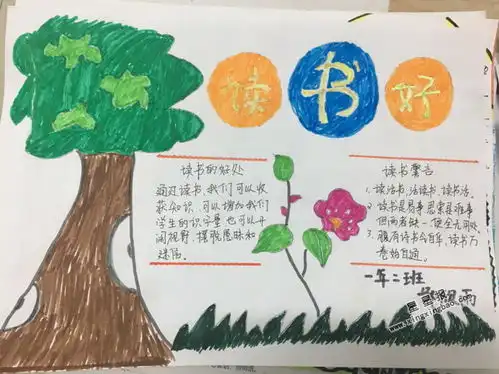 读书好
读书的好处
通过读书,我们可以收
获知识,可以增加我们
学生的识字量,也可以开
阔视野,摆脱愚昧和
迷信。
读书警告
1、读活书,活读书,读书活。
2、读书是易事,思索是难事
但两者缺一,便全无用处。
3、腹有诗书气自华,读书万
卷始自通。
一年二班
星星报
www.xingxingbao.com